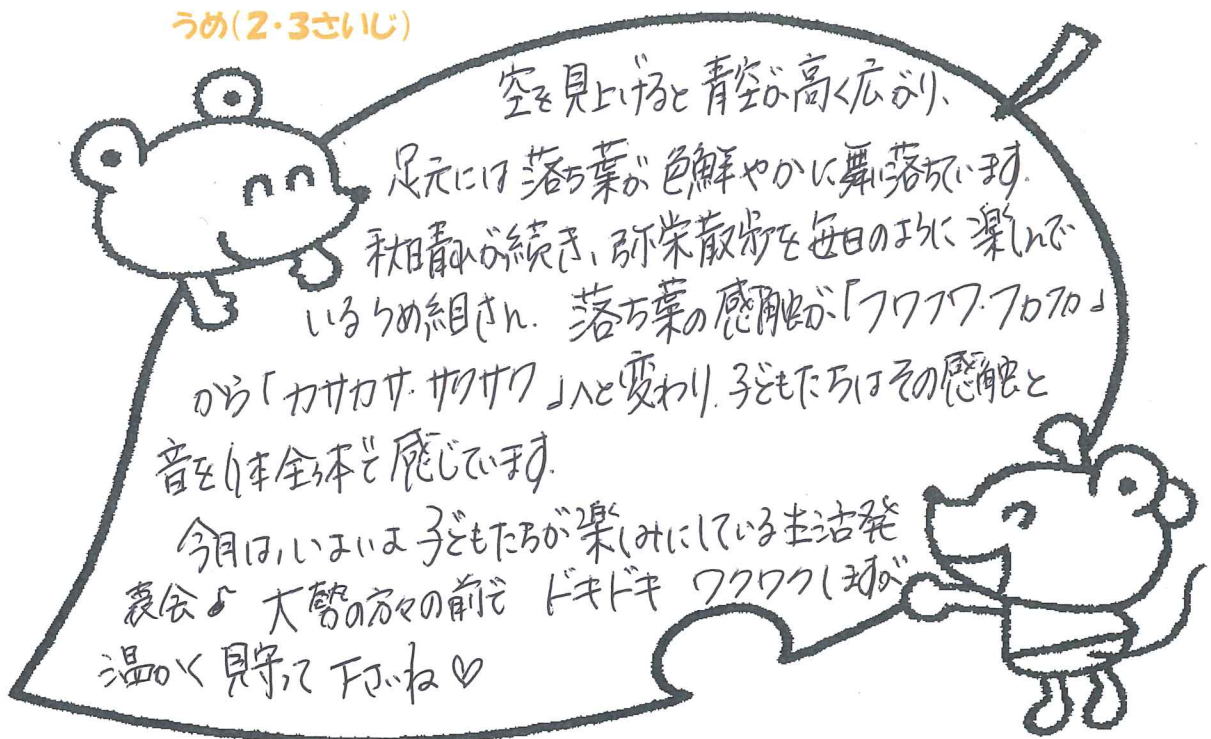 うめ(2・3さいじ)
空を見上げると青空が高く広がり、
足元には落ち葉が色鮮やかに舞い落ちています。
秋晴れが続き、弥栄散歩を毎日のように楽しんで
いるうめ組さん。落ち葉の感触が、「フワフワ・フカフカ」
から「カサカサ・サクサク」へと変わり、子どもたちはその感触と
音を体全体で感じています。
今月は、いよいよ子どもたちが楽しみにしている生活発
表会♪ 大勢の方々の前で ドキドキ ワクワクしますが
温かく見守って下さいね♡